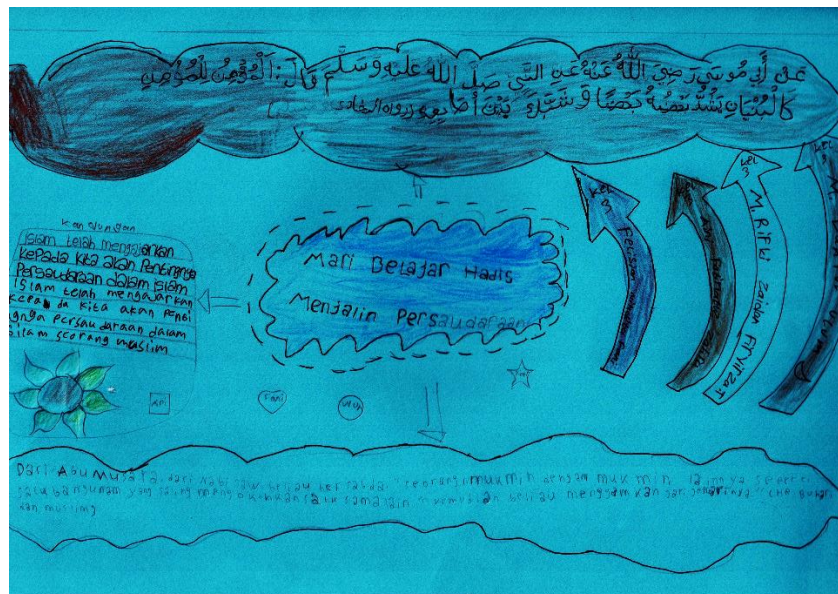 عَنْ أَبِي مُوسَى رَضِيَ اللَّهُ عَنْهُ عَنِ النَّبِيِّ صَلَّى اللَّهُ عَلَيْهِ وَسَلَّمَ قَالَ: اَلْمُؤْمِنُ لِلْمُؤْمِنِ
كَالْبُنْيَانِ يَشُدُّ بَعْضُهُ بَعْضًا وَشَبَّكَ بَيْنَ أَصَابِعِهِ
Kandungan
Islam telah mengajarkan
kepada kita akan Pentingnya
Persaudaraan dalam Islam
Islam telah mengajarkan
kepada kita akan Penti
ngnya Persaudaraan dalam
seorang muslim
Mari Belajar Hadis
Menjalin Persaudaraan
kel 3
kel 3 M. Rifki Zaidan
Fani
Dari Abu Musa ra. dari nabi saw. beliau bersabda: seorang mukmin dengan mukmin lainnya seperti
satu bangunan yang saling mengokohkan satu sama lain kemudian beliau jari jemarinya
dan muslim